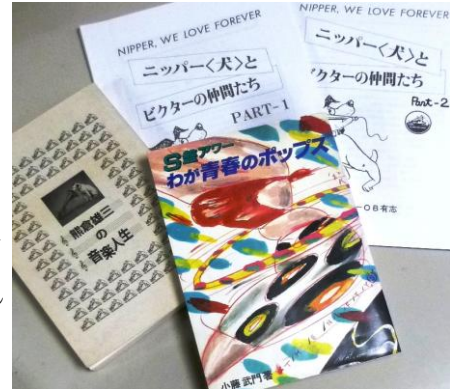 NIPPER, WE LOVE FOREVER
ニッパー<犬>と
ビクターの仲間たち
PART-1
NIPPER, WE LOVE FOREVER
ニッパー<犬>と
ビクターの仲間たち
Part-2
OB有志
S盤アワー
わが青春のポップス
小藤武門著
熊倉雄三
の
音楽人生